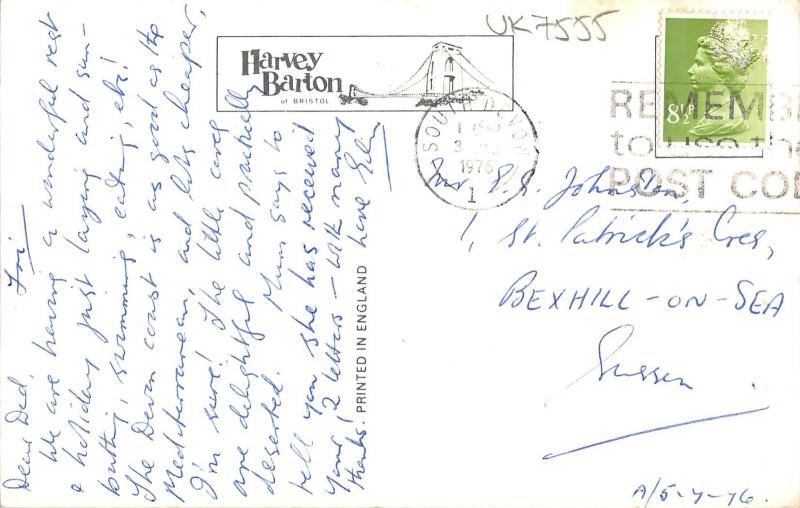 UK7555
Harvey
Barton
of BRISTOL
8½P
SOUTH DEVON
1976
1
REMEMB
to use the
POST COD
Fri
Dear Dad,
We are having a wonderful rest
& holiday just laying and sun-
bathing, swimming, eating, etc!
The Devon coast is as good as the
Mediterranean, and lots cheaper,
I'm sure! The little coves
are delightful and practically
deserted. Mum says to
tell you she has received
your 2 letters – with many
thanks! Love
PRINTED IN ENGLAND
Mr P. Johnston,
1, St. Patrick's Cres,
BEXHILL-ON-SEA
Sussex
A/5-7-76.